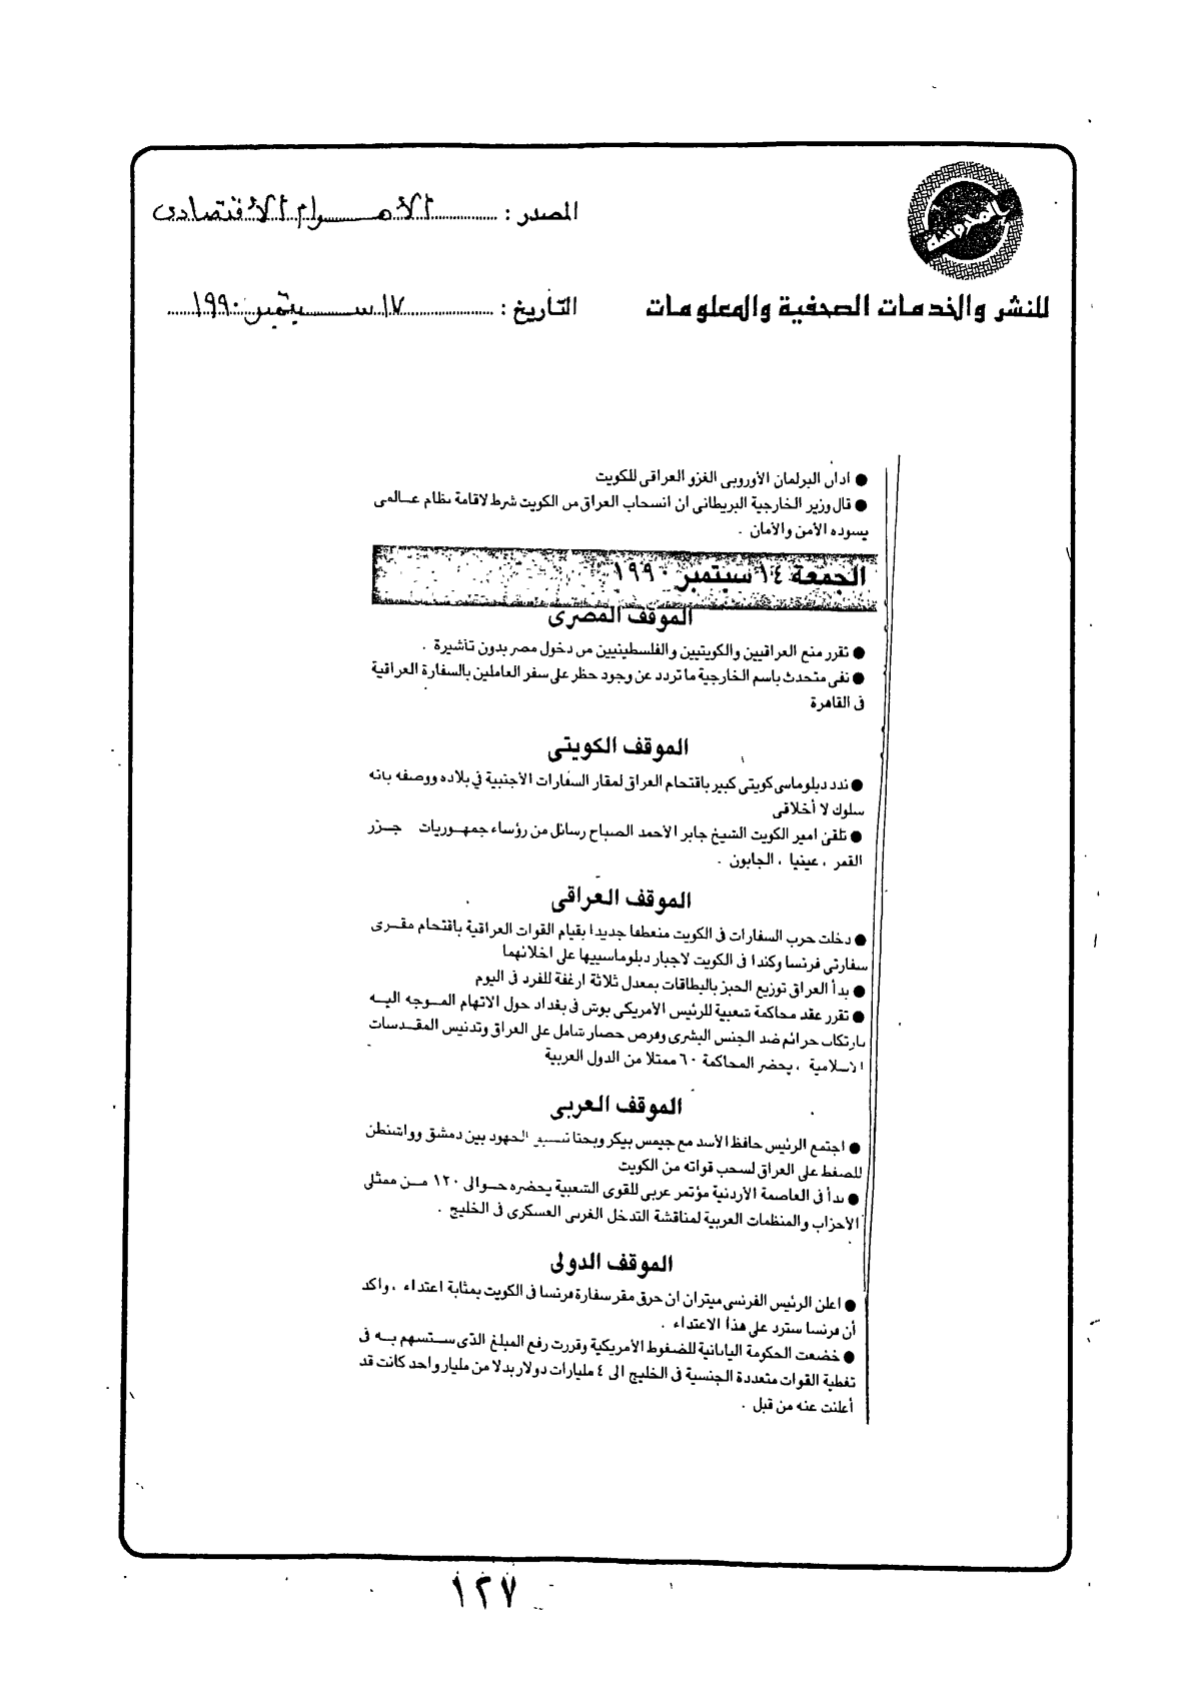 المحروسة
المصدر : الأهرام الاقتصادى
للنشر والخدمات الصحفية والمعلومات
التاريخ : ١٧ سبتمبر ١٩٩٠
● ادان البرلمان الأوروبى الغزو العراقى للكويت
● قال وزير الخارجية البريطانى ان انسحاب العراق من الكويت شرط لاقامة نظام عالمى
يسوده الأمن والأمان .
الجمعة ١٤ سبتمبر ١٩٩٠
الموقف المصرى
● تقرر منع العراقيين والكويتيين والفلسطينيين من دخول مصر بدون تأشيرة .
● نفى متحدث باسم الخارجية ما تردد عن وجود حظر على سفر العاملين بالسفارة العراقية
فى القاهرة
الموقف الكويتى
● ندد دبلوماسى كويتى كبير باقتحام العراق لمقار السفارات الأجنبية في بلاده ووصفه بانه
سلوك لا أخلاقى
● تلقى امير الكويت الشيخ جابر الأحمد الصباح رسائل من رؤساء جمهوريات جزر
القمر ، غينيا ، الجابون .
الموقف العراقى
● دخلت حرب السفارات فى الكويت منعطفا جديدا بقيام القوات العراقية باقتحام مقرى
سفارتى فرنسا وكندا فى الكويت لاجبار دبلوماسييها على اخلائهما
● بدأ العراق توزيع الخبز بالبطاقات بمعدل ثلاثة ارغفة للفرد فى اليوم
● تقرر عقد محاكمة شعبية للرئيس الأمريكى بوش فى بغداد حول الاتهام الموجه اليه
بارتكاب جرائم ضد الجنس البشرى وفرض حصار شامل على العراق وتدنيس المقدسات
الاسلامية ، يحضر المحاكمة ٦٠ ممثلا من الدول العربية
الموقف العربى
● اجتمع الرئيس حافظ الأسد مع جيمس بيكر وبحثا تنسيق الجهود بين دمشق وواشنطن
للضغط على العراق لسحب قواته من الكويت
● بدأ فى العاصمة الأردنية مؤتمر عربى للقوى الشعبية يحضره حوالى ١٢٠ من ممثلى
الأحزاب والمنظمات العربية لمناقشة التدخل الغربى العسكرى فى الخليج .
الموقف الدولى
● اعلن الرئيس الفرنسى ميتران ان حرق مقر سفارة فرنسا فى الكويت بمثابة اعتداء ، واكد
أن فرنسا سترد على هذا الاعتداء .
● خضعت الحكومة اليابانية للضغوط الأمريكية وقررت رفع المبلغ الذى ستسهم به فى
تغطية القوات متعددة الجنسية فى الخليج الى ٤ مليارات دولار بدلا من مليار واحد كانت قد
أعلنت عنه من قبل .
١٢٧